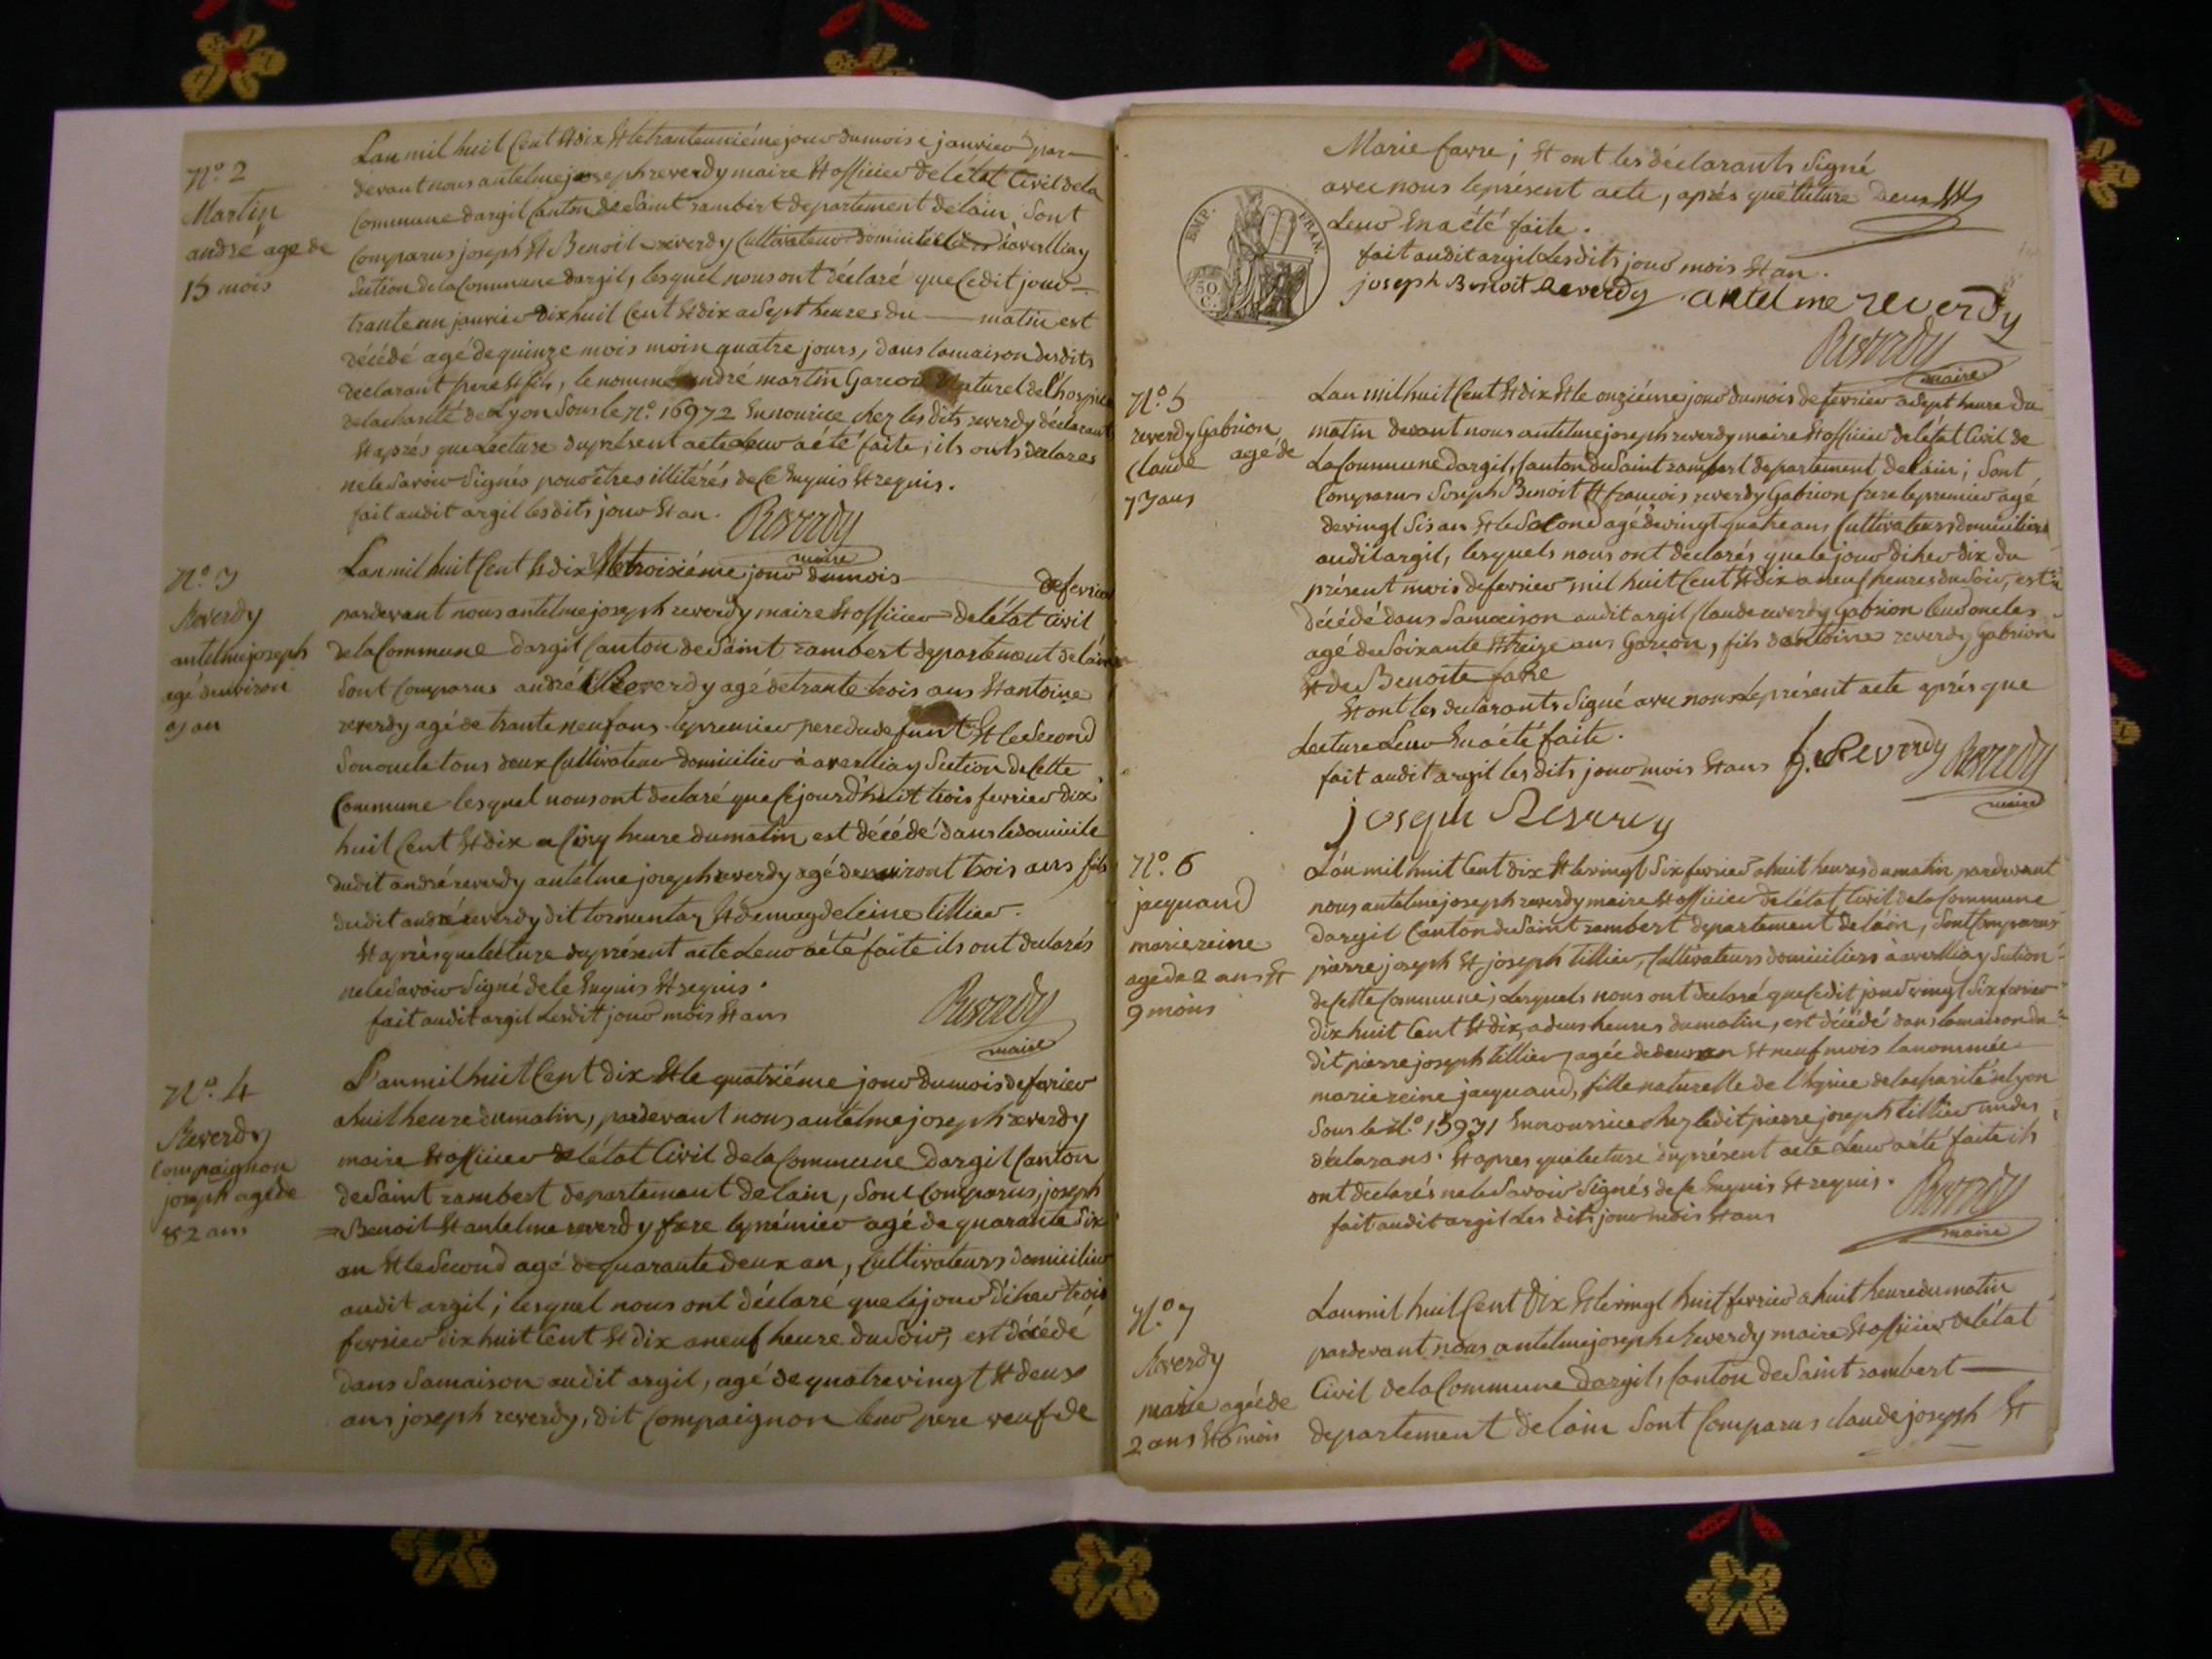 N.o 2
Martin
andré agé de
15 mois
Lan mil huit Cent & dix & le trante uniéme jour du mois e janvier par
devant nous antelme joseph reverdy maire & officier de létat Civil de la
Commune dargil Canton de Saint rambert departement de lain, Sont
Comparus joseph & Benoit reverdy Cultivateur domiciliés à averlliay
Section de la Commune dargil, lesquel nous ont déclaré que Cedit jour
trante un janvier dix huit Cent & dix a Sept heures du matin est
décédé agé de quinze mois moin quatre jours, dans la maison desdits
déclarant pere & fils, le nommé andré martin Garcon Naturel de l'hospice
de la charité de Lyon Sous le N.o 16972 En nourice chez les dits reverdy déclarant
& aprés que Lecture du présent acte Leur a été faite, ils onts declares
ne le Savoir Signés pour êtres illitérés de Ce Enquis & requis.
fait audit argil les dits jour & an. Reverdy
maire
N.o 3
Reverdy
antelme joseph
agé denviron
3 an
Lan mil huit Cent & dix & le troisiéme jour du mois de fevrier
pardevant nous antelme joseph reverdy maire & officier de létat Civil
de la Commune dargil Canton de Saint rambert departement de lain
Sont Comparus andré Reverdy agé de trante trois ans & antoine
reverdy agé de trante neuf ans le premier pere du defunt & le Second
Son oncle tous deux Cultivateur domicilier à averlliay Section de Cette
Commune lesquel nous ont declaré que Cejourd'huit trois fevrier dix
huit Cent & dix a Cinq heure du matin est décédé dans le domicile
dudit andré reverdy antelme joseph reverdy agé denviront trois ans fils
dudit andré reverdy dit tormentaz & de magdeleine tillier.
& aprés que lecture du présent acte Leur a été faite ils ont declarés
ne le Savoir Signé de Ce Enquis & requis.
fait audit argil Lesdit jour mois & ans Reverdy
maire
N.o 4
Reverdy
Compaignon
joseph agé de
82 ans
L'an mil huit Cent dix & le quatriéme jour du mois de fevrier
a huit heure du matin, pardevant nous antelme joseph reverdy
maire & officier de létat Civil de la Commune dargil Canton
de Saint rambert departement de lain, Sont Comparus, joseph
Benoit & antelme reverdy frere le prémier agé de quarante Six
an & le Second agé de quarante deux an, Cultivateurs domicilier
audit argil; lesquel nous ont déclaré que le jour d'iher trois
fevrier dix huit Cent & dix a neuf heure du Soir, est décédé
dans Sa maison audit argil, agé de quatre vingt & deux
ans joseph reverdy, dit Compaignon leur pere veuf de
Marie favre; & ont les déclarants Signé
avec nous le présent acte, aprés que lecture
Leur En a été faite.
fait audit argil Les dits jour mois & an.
joseph Benoit Reverdy antelme reverdy
Reverdy
maire
EMP. FRAN.
50
C.
N.o 5
reverdy Gabrion
Claude agé de
73 ans
Lan mil huit Cent & dix & le onziéme jour du mois de fevrier a Sept heure du
matin devant nous antelme joseph reverdy maire & officier de létat Civil de
La Commune dargil, Canton du Saint rambert departement de lain; Sont
Comparus Joseph Benoit & francois reverdy Gabrion frere le premier agé
de vingt Six an & le Second agé de vingt quatre ans Cultivateurs domiciliers
audit argil, lesquels nous ont declarés que le jour diher dix du
présent mois de fevrier mil huit Cent & dix a neuf heures du Soir, est
décédé dans Sa maison audit argil Claude reverdy Gabrion leur oncles
agé de Soixante & treize ans Garçon, fils dantoine reverdy Gabrion
& de Benoite favre
& ont les declarants Signé avec nous Le présent acte aprés que
Lecture Leur En a été faite.
fait audit argil les dits jour mois & ans f. Reverdy Reverdy
maire
joseph Reverdy
N.o 6
jacquand
marie reine
agé de 2 ans &
9 mois
L'an mil huit Cent dix & le vingt Six fevrier a huit heures du matin pardevant
nous antelme joseph reverdy maire & officier de létat Civil de la Commune
dargil Canton du Saint rambert departement de lain, Sont Comparus
pierre joseph & joseph tillier, Cultivateurs domiciliers à averlliay Section
de Cette Commune, Lesquels nous ont declaré que Cedit jour vingt Six fevrier
dix huit Cent & dix, a deux heures du matin, est décédé dans la maison du
dit pierre joseph tillier agée de deux an & neuf mois la nommée
marie reine jacquand, fille naturelle de l'hspice de la charité de lyon
Sous le N.o 15931 En nourrice chez ledit pierre joseph tillier un des
déclarans. & apres que lecture du présent acte Leur a été faite ils
ont declarés ne le Savoir Signés de Ce Enquis & requis.
fait audit argil Les dits jour mois & ans Reverdy
maire
N.o 7
Reverdy
marie agée de
2 ans & 6 mois
Lan mil huit Cent Dix & le vingt huit fevrier a huit heure du matin
pardevant nous antelme joseph Reverdy maire & officier de létat
Civil de la Commune dargil, Canton de Saint rambert
departement de lain Sont Comparus claude joseph &